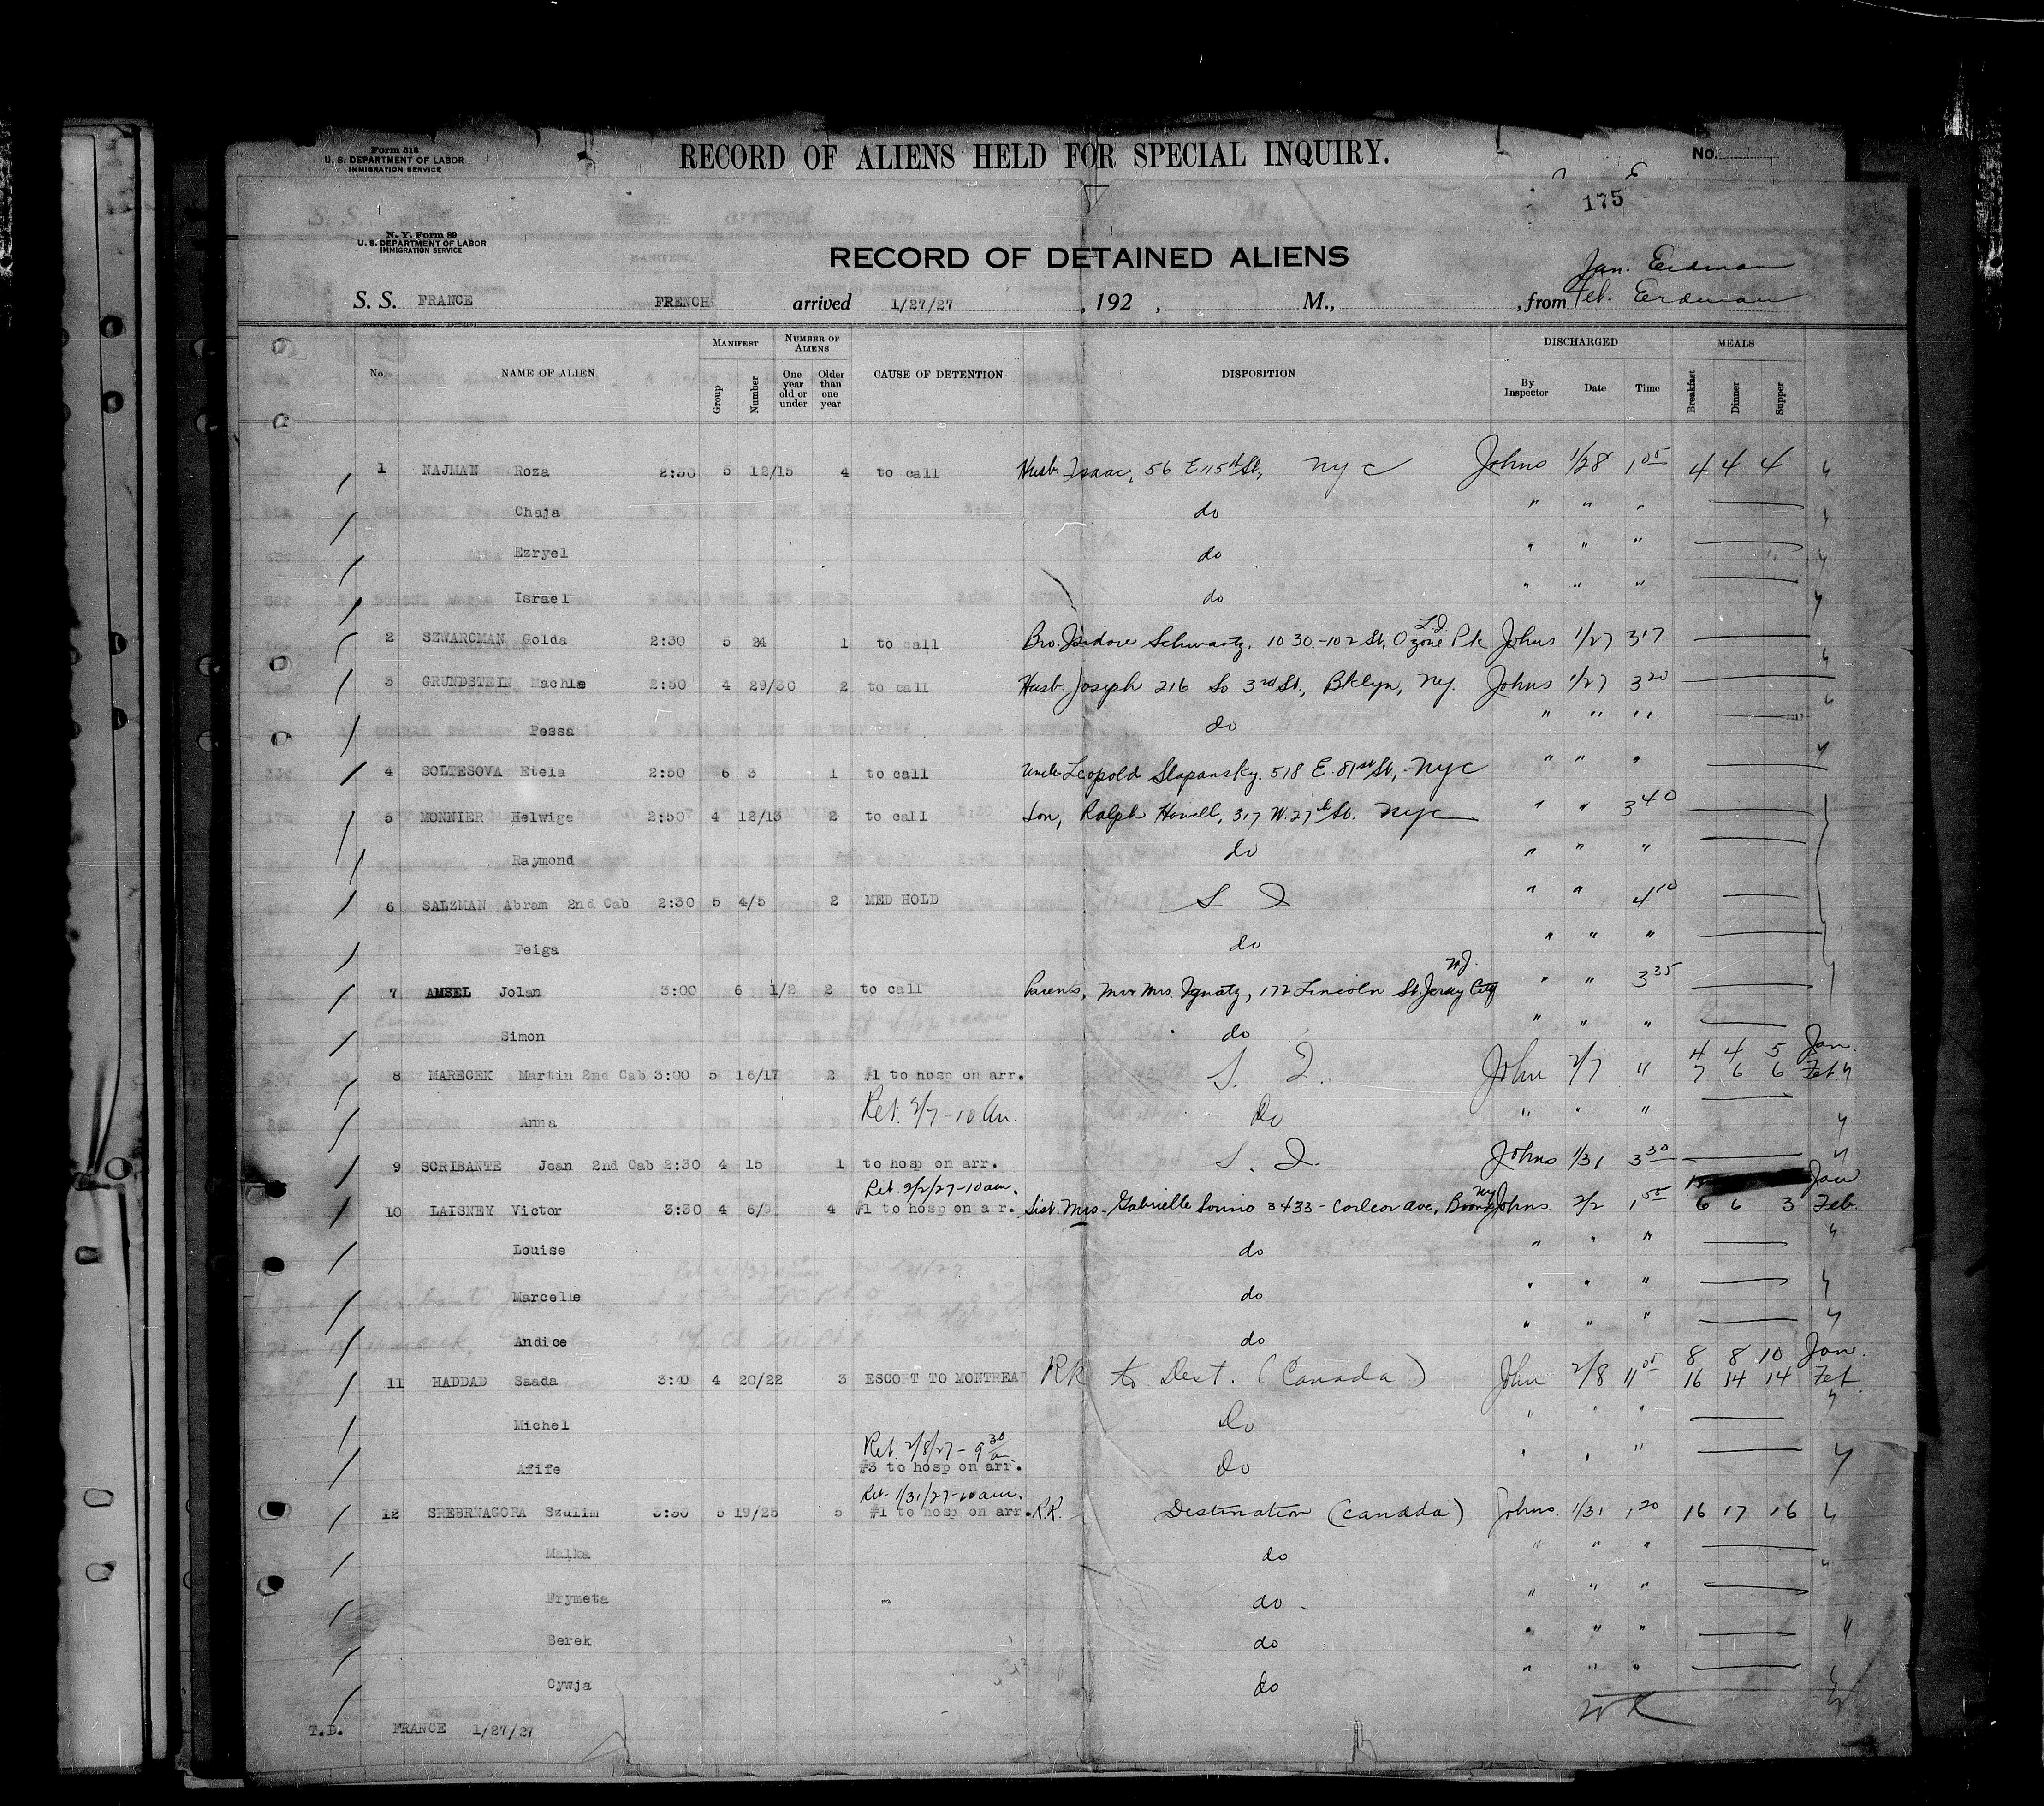 Form 318
U. S. DEPARTMENT OF LABOR
IMMIGRATION SERVICE
RECORD OF ALIENS HELD FOR SPECIAL INQUIRY.
No.
175
N. Y. Form 89
U. S. DEPARTMENT OF LABOR
IMMIGRATION SERVICE
RECORD OF DETAINED ALIENS
Jan. Erdman
S. S. FRANCE FRENCH arrived 1/27/27, 192 , M., , from Feb. Erdman
No. NAME OF ALIEN MANIFEST Group Number NUMBER OF ALIENS One year old or under Older than one year CAUSE OF DETENTION DISPOSITION DISCHARGED By Inspector Date Time MEALS Breakfast Dinner Supper
1 NAJMAN Roza 2:30 5 12/15 4 to call Husb. Isaac, 56 E 115th St, NYC Johns 1/28 1 05 4 4 4
Chaja do " " "
Ezryel do " " "
Israel do " " "
2 SZWARCMAN Golda 2:30 5 24 1 to call Bro. Isidore Schwartz, 1030-102 St, Ozone Pk L.I. Johns 1/27 3 17
3 GRUNDSTEIN Machla 2:50 4 29/30 2 to call Husb. Joseph 216 So 3rd St., Bklyn, NY. Johns 1/27 3 20
Pessa do " " "
4 SOLTESOVA Etela 2:50 6 3 1 to call Uncle Leopold Slapansky. 518 E. 81st St, NYC " " "
5 MONNIER Helwige 2:50 4 12/13 2 to call Son, Ralph Howell, 317 W. 27th St. NYC " " 3 40
Raymond do " " "
6 SALZMAN Abram 2nd Cab 2:30 5 4/5 2 MED HOLD S I " " 4 10
Feiga do " " "
7 AMSEL Jolan 3:00 6 1/2 2 to call Parents, Mr & Mrs. Ignatz, 172 Lincoln St Jersey City N.J. " " 3 35
Simon do " " "
4 4 5 Jan.
8 MARECEK Martin 2nd Cab 3:00 5 16/17 2 #1 to hosp on arr. S. I. John 2/7 " 7 6 6 Feb.
Ret. 2/7 - 10 Am.
Anna Do " " "
9 SCRIBANTE Jean 2nd Cab 2:30 4 15 1 to hosp on arr. S. I. Johns 1/31 3 30
Ret. 2/2/27-10am. Jan
10 LAISNEY Victor 3:30 4 6/9 4 #1 to hosp on a r. Sist. Mrs. Gabrielle 3433 - Ave, Bronx NY Johns. 2/2 1 55 6 6 3 Feb.
Louise do " " "
Marcelle do " " "
Andice do " " "
8 8 10 Jan.
11 HADDAD Saada 3:40 4 20/22 3 ESCORT TO MONTREA RR to Dest. (Canada) John 2/8 11 05 16 14 14 Feb
Michel Do " " "
Ret. 2/8/27 - 9 30 a
Afife #3 to hosp on arr. Do " " "
Ret. 1/31/27-10am.
12 SREBRNAGORA Szulim 3:30 5 19/25 5 #1 to hosp on arr. R.R. Destination (Canada) Johns. 1/31 1 20 16 17 16
Malka do " " "
Frymeta do " " "
Berek do " " "
Cywja do " " "
T.D. FRANCE 1/27/27